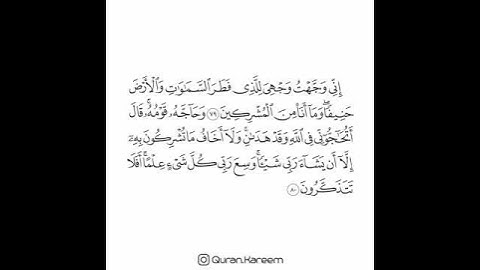 إِنِّي وَجَّهْتُ وَجْهِيَ لِلَّذِي فَطَرَ السَّمَٰوَٰتِ وَالْأَرْضَ
حَنِيفًا ۖ وَمَا أَنَا مِنَ الْمُشْرِكِينَ ٧٩ وَحَاجَّهُ قَوْمُهُ ۚ قَالَ
أَتُحَٰجُّونِّي فِي اللَّهِ وَقَدْ هَدَىٰنِ ۚ وَلَا أَخَافُ مَا تُشْرِكُونَ بِهِ
إِلَّا أَن يَشَاءَ رَبِّي شَيْئًا ۗ وَسِعَ رَبِّي كُلَّ شَيْءٍ عِلْمًا ۗ أَفَلَا
تَتَذَكَّرُونَ ٨٠
Quran.Kareem